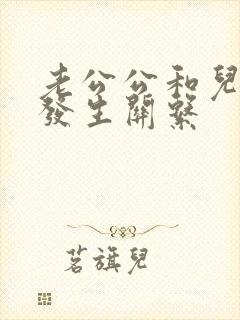 老公公和兒
發生關繫
茗旗兒